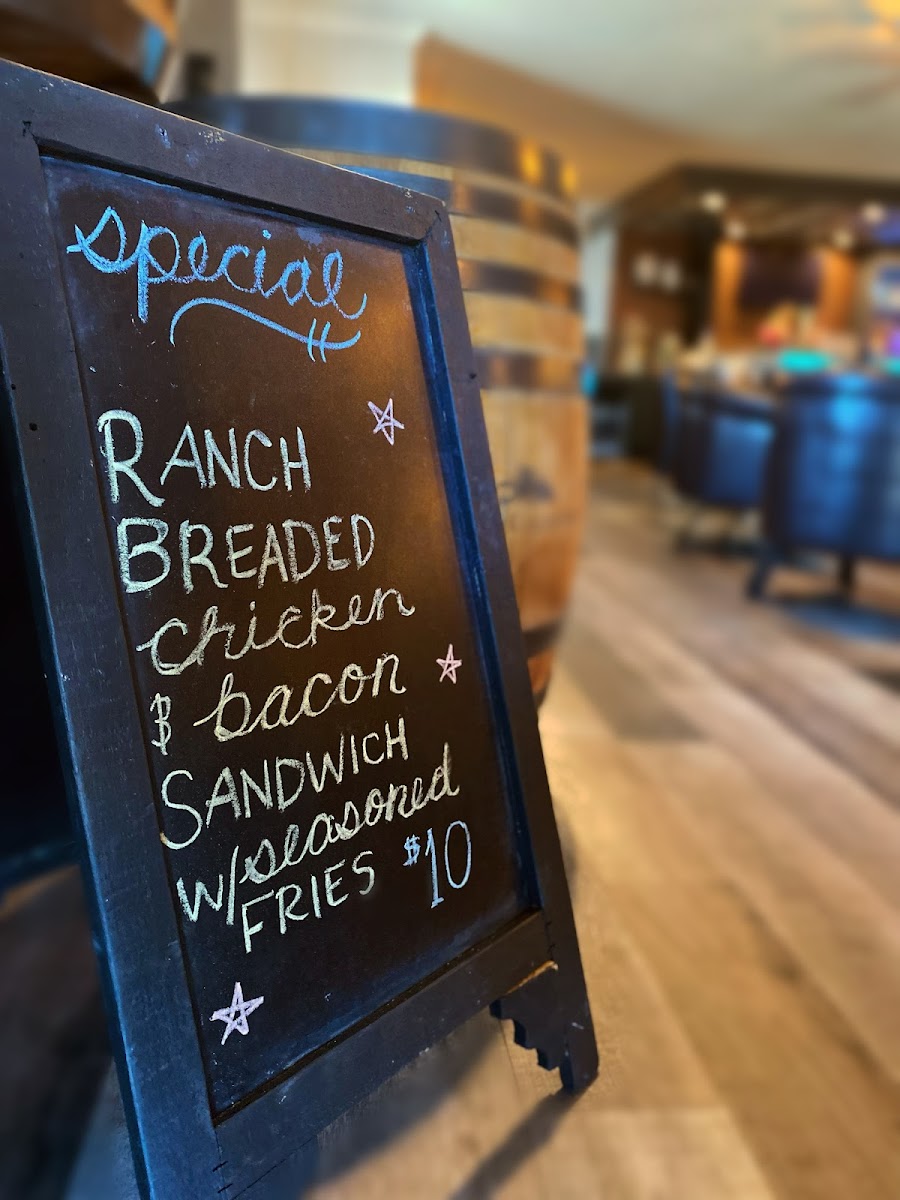 special
RANCH
BREADED
chicken
& bacon
SANDWICH
w/seasoned
FRIES $10